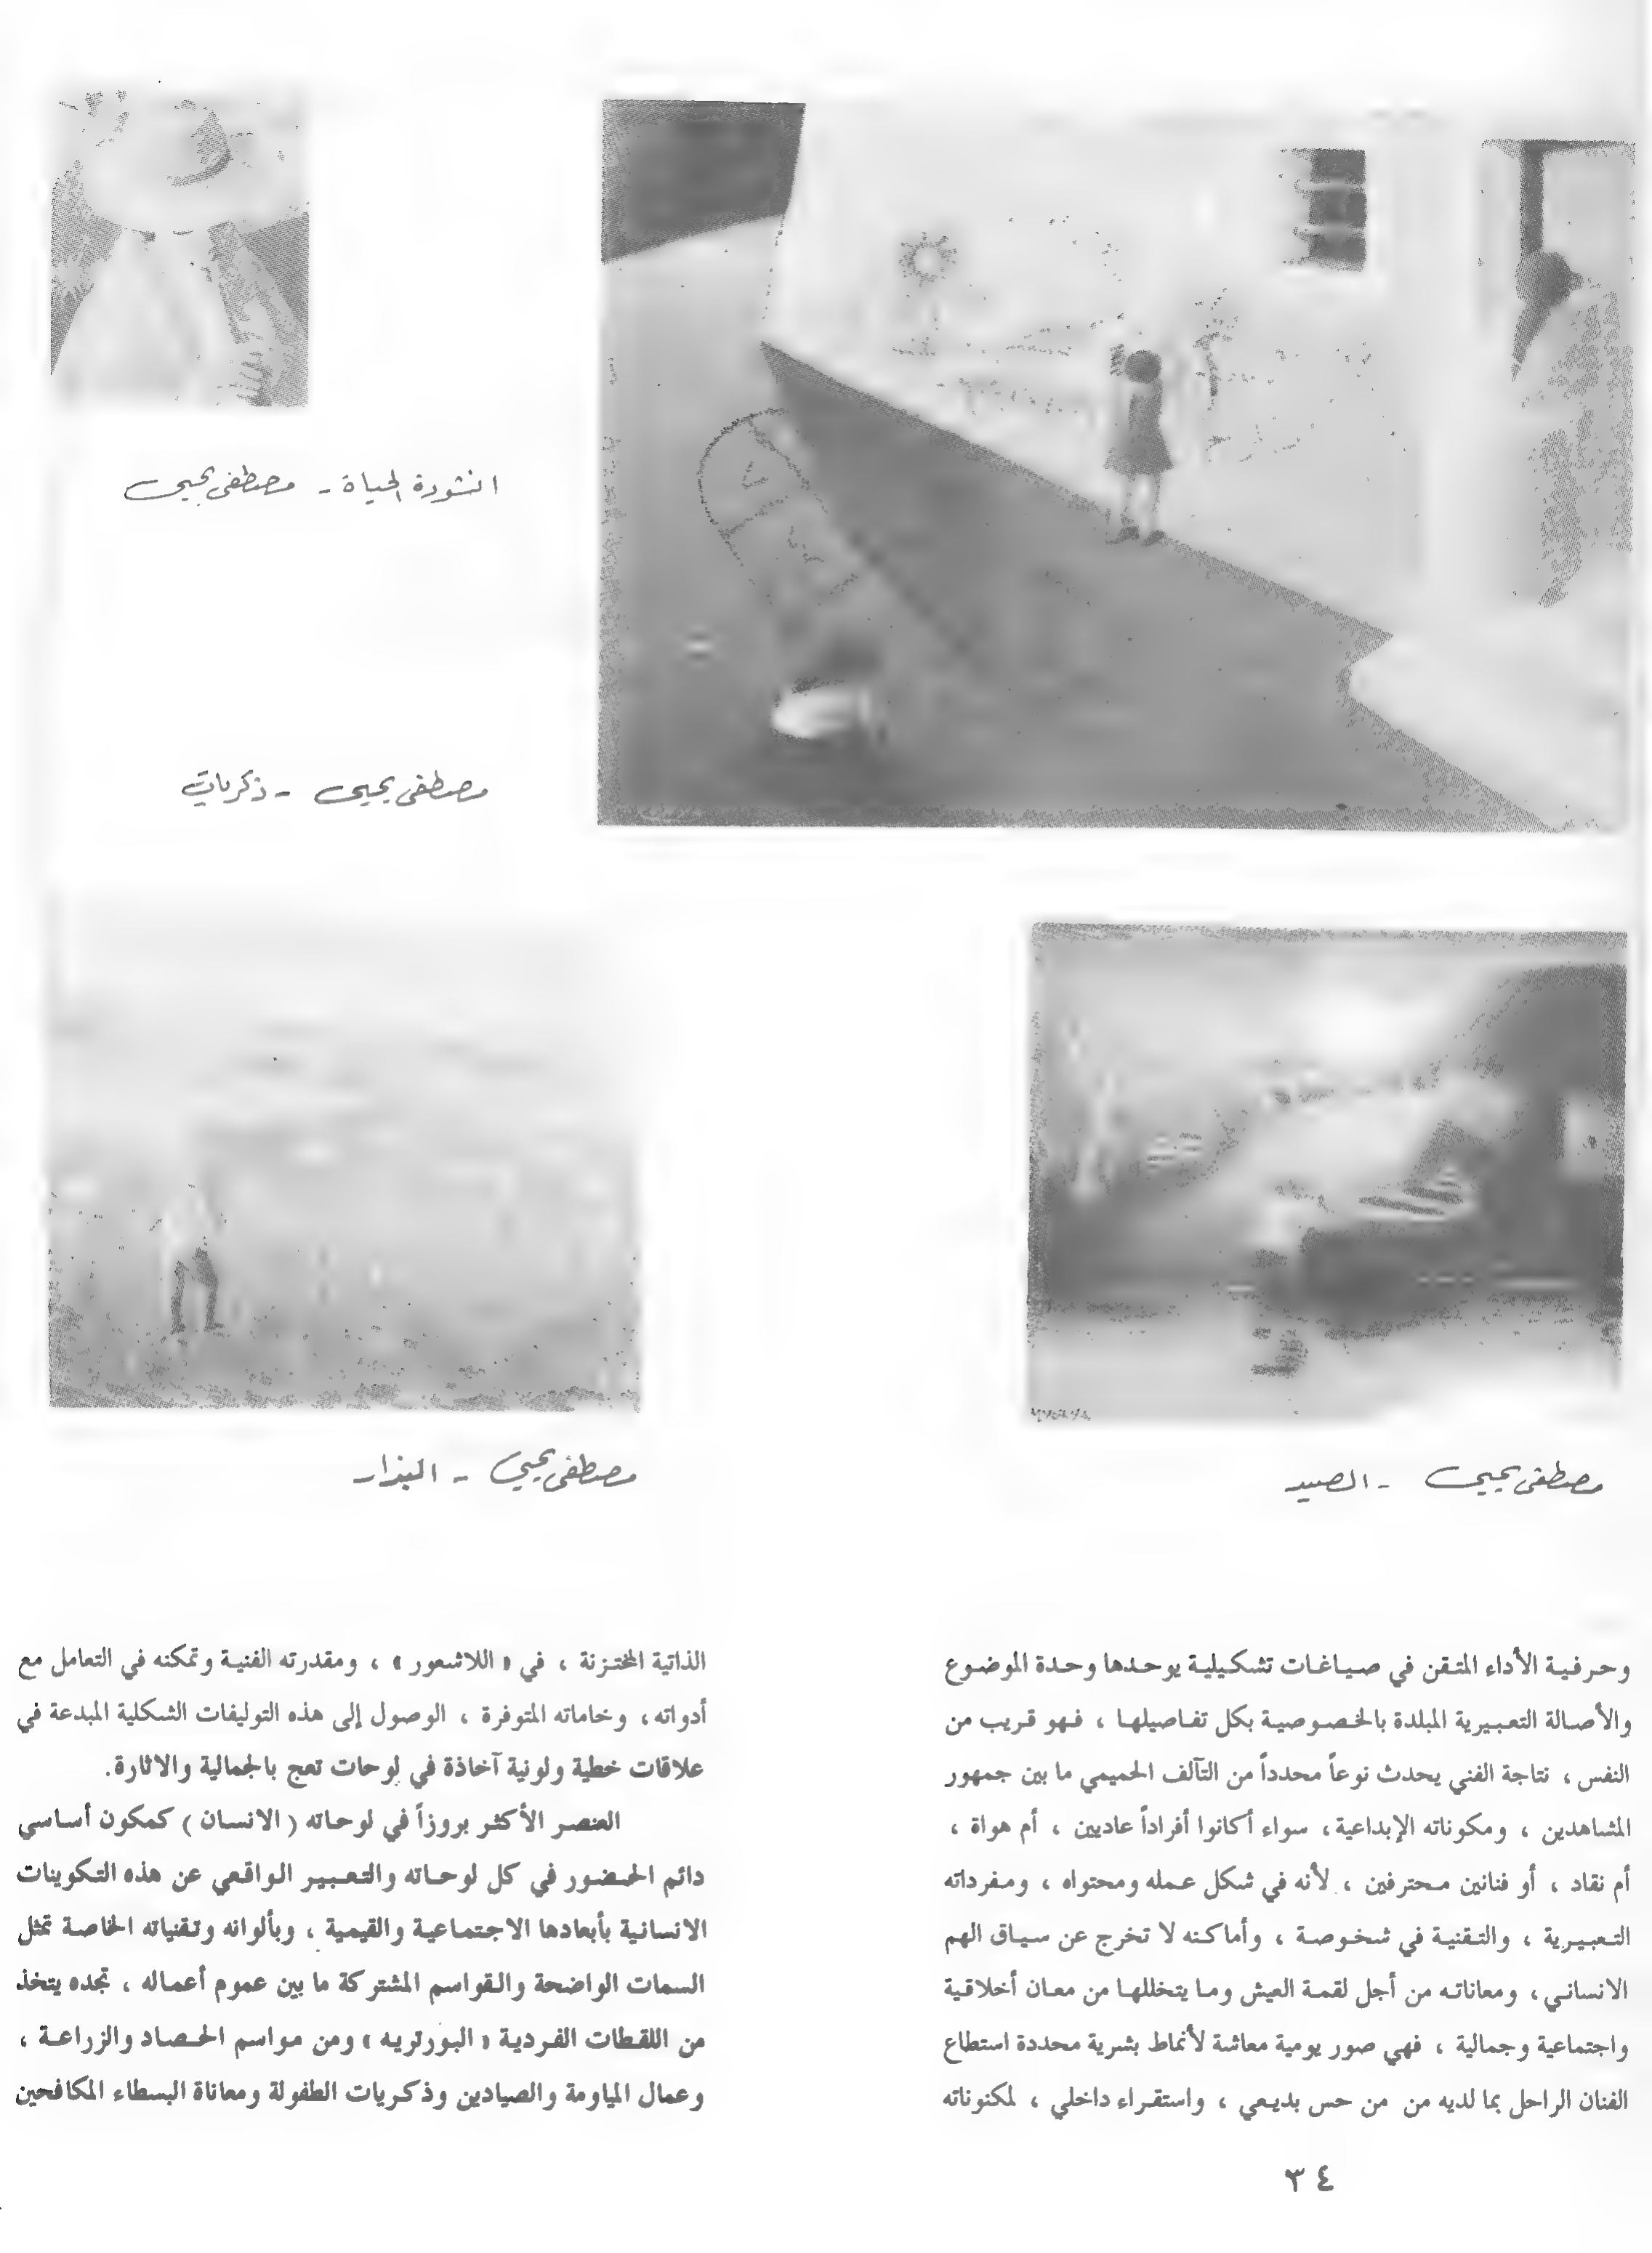 انشودة الحياة - مصطفى يحيى
مصطفى يحيى - ذكريات
مصطفى يحيى - الصيد
مصطفى يحيى - البذار
وحرفية الأداء المتقن في صياغات تشكيلية يوحدها وحدة الموضوع
والأصالة التعبيرية المبلدة بالخصوصية بكل تفاصيلها ، فهو قريب من
النفس ، نتاجة الفني يحدث نوعاً محدداً من التآلف الحميمي ما بين جمهور
المشاهدين ، ومكوناته الإبداعية ، سواء أكانوا أفراداً عاديين ، أم هواة ،
أم نقاد ، أو فنانين محترفين ، لأنه في شكل عمله ومحتواه ، ومفرداته
التعبيرية ، والتقنية في شخوصة ، وأماكنه لا تخرج عن سياق الهم
الانساني ، ومعاناته من أجل لقمة العيش وما يتخللها من معان أخلاقية
واجتماعية وجمالية ، فهي صور يومية معاشة لأنماط بشرية محددة استطاع
الفنان الراحل بما لديه من من حس بديعي ، واستقراء داخلي ، لمكنوناته
الذاتية المختزنة ، في « اللاشعور » ، ومقدرته الفنية وتمكنه في التعامل مع
أدواته ، وخاماته المتوفرة ، الوصول إلى هذه التوليفات الشكلية المبدعة في
علاقات خطية ولونية آخاذة في لوحات تعج بالجمالية والاثارة.
العنصر الأكثر بروزاً في لوحاته ( الانسان ) كمكون أساسي
دائم الحضور في كل لوحاته والتعبير الواقعي عن هذه التكوينات
الانسانية بأبعادها الاجتماعية والقيمية ، وبألوانه وتقنياته الخاصة تمثل
السمات الواضحة والقواسم المشتركة ما بين عموم أعماله ، تجده يتخذ
من اللقطات الفردية « البورتريه » ومن مواسم الحصاد والزراعة ،
وعمال المياومة والصيادين وذكريات الطفولة ومعاناة البسطاء المكافحين
٣٤